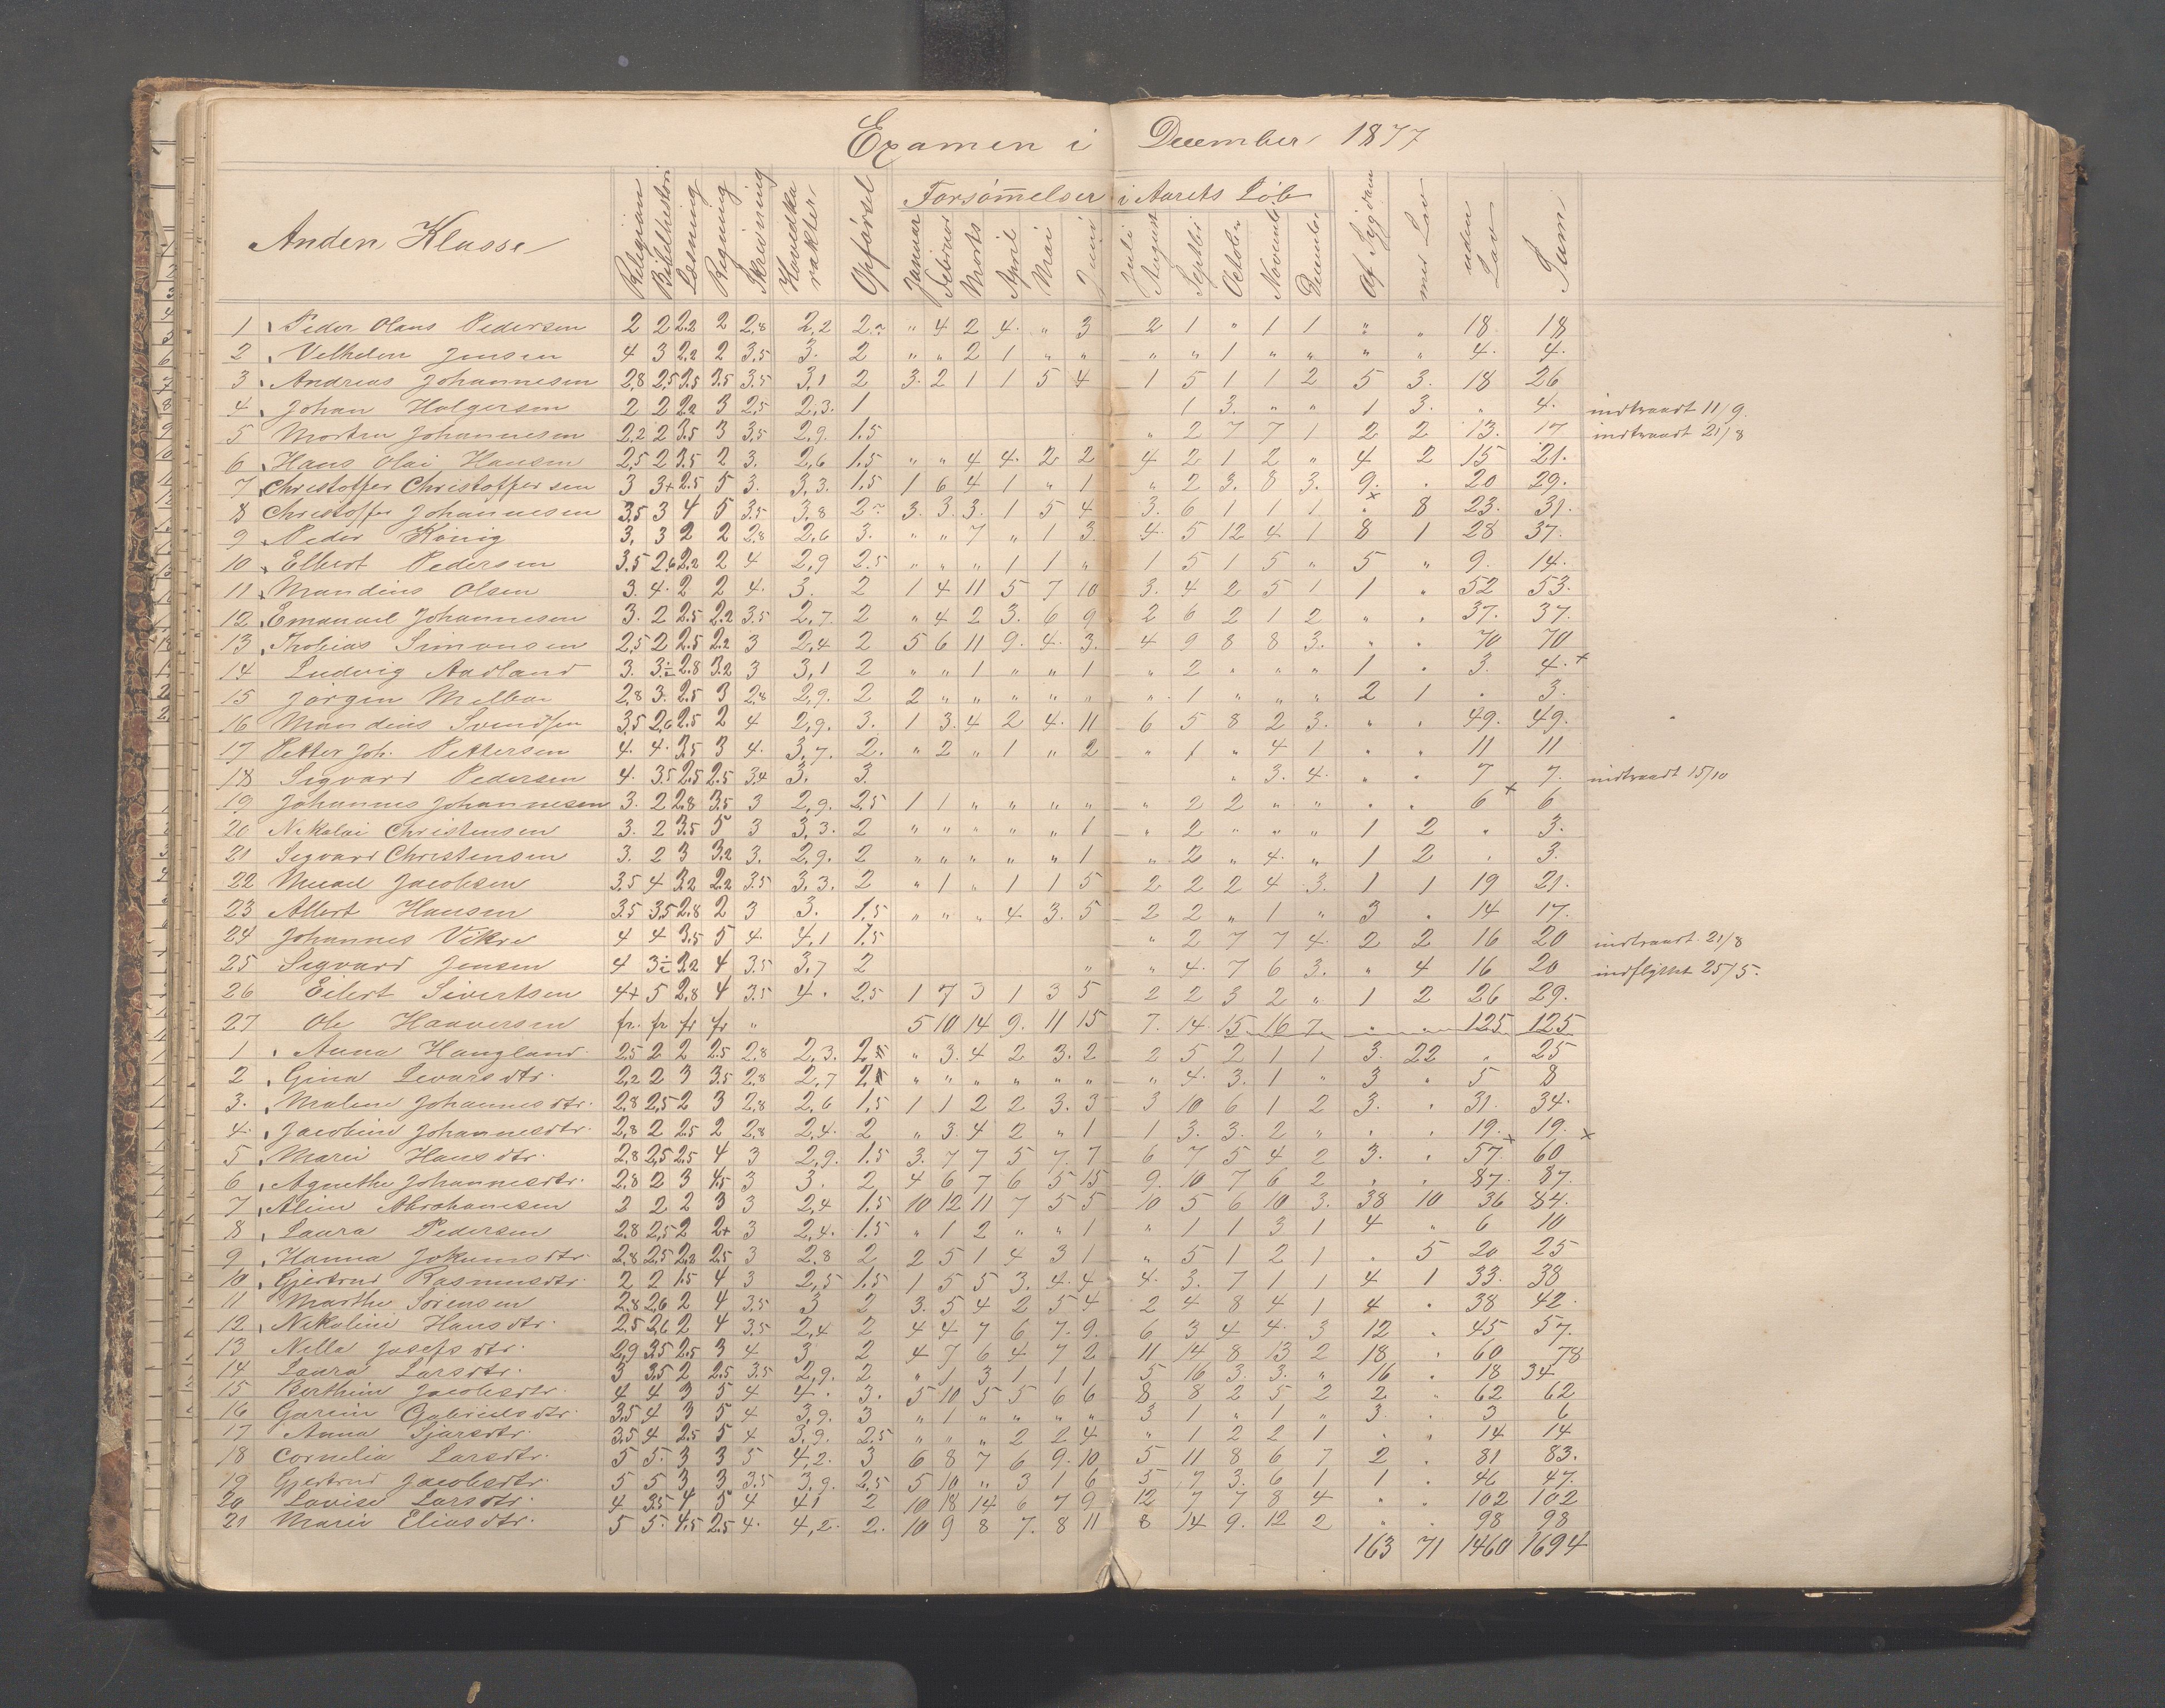 Examen i December 1877
Anden Klasse Religion Bibelhistori Læsning Regning Skrivning Hovedkarakter Opførsel Forsømmelser i Aarets Løb Januar Februar Marts April Mai Juni Juli August Septbr October Novembr Decembr Af Sygdom med Lov uden Lov Sum
1 Peder Olaus Pedersen 2 2 2.2 2 2,8 2,2 2 " 4 2 4. " 3 2 1 " 1 1 " " 18. 18
2 Velhelm Jensen 4 3 2.2 2 3.5 3. 2 " " 2 1 " " " " 1 " " " " 4. 4.
3 Andreas Johannesen 2,8 2,5 3.5 3.5 3.5 3,1 2 3. 2 1 1 5 4 1 5 1 1 2 5 3. 18 26
4 Johan Holgersen 2 2 2.2 3 2,5 2,3. 1 1 3. " " 1 3. " 4. indtraadt 11/9.
5 Morten Johannesen 2,2 2 3.5 3 3.5 2,9. 1.5 " 2 7 7 1 2 2 13. 17 indtraadt 21/8
6 Hans Olai Hansen 2,5 2 3.5 2 3. 2,6 1.5 " " 4 4. 2 2 4 2 1 2 " 4 2 15 21.
7 Christoffer Christoffersen 3 3+ 2.5 5 3. 3,3. 1.5 1 6 4 1 " 1 " 2 3. 8 3. 9. . 20 29.
8 Christoffer Johannesen 3,5 3 4 5 3.5 3,8 2 3. 3. 3. 1 5 4 3. 6 1 1 1 × . 8 23. 31.
9 Peder König 3, 3 2 2 2,8 2,6 3. " " 7 " 1 3. 4. 5 12 4 1 8 1 28 37.
10 Elbert Pedersen 3.5 2,6 2.2 2 4 2,9 2.5 " " " 1 1 " 1 5 1 5 " 5 " 9. 14.
11 Mandius Olsen 3. 4. 2 2 4. 3. 2 1 4 11 5 7 10 3. 4 2 5 1 1 " 52 53.
12 Emanuel Johannesen 3. 2 2.5 2.2 3.5 2,7. 2 " 4 2 3. 6 9 2 6 2 1 2 " . 37. 37.
13 Thobias Simonsen 2,5 2 2.5 2.2 3 2,4 2 5 6 11 9. 4. 3. 4 9 8 8 3. " . 70 70
14 Ludvig Aadland 3. 3÷ 2.8 3.2 3 3,1 2 " " 1 " " 1 " 2 " " " 1 . 3. 4. +
15 Jørgen Melbøe 2,8 3. 2.5 3 2,8 2,9. 2 2 " " " " " " 1 " " " 2 1 . 3.
16 Mandius Svendsen 3,5 2,6 2.5 2 4 2,9. 3. 1 3. 4 2 4. 11 6 5 8 2 3. " . 49. 49.
17 Petter Joh. Pettersen 4. 4. 3.5 3 4. 3,7. 2. " 2 " 1 " 2 " 1 " 4 1 " . 11 11
18 Sigvard Pedersen 4. 3.5 2.5 2.5 3.4 3. 3 " 3. 4. " . 7 7. indtraadt 15/10
19 Johannes Johannesen 3. 2 2.8 3.5 3 2,9. 2.5 1 1 " " " " " 2 2 " " . . 6 + 6
20 Nikolai Christensen 3. 2 3.5 5 3 3,3. 2 " " " " " 1 " 2 " " " 1 2 . 3.
21 Sigvard Christensen 3. 2 3 3.2 3. 2,9. 2 " " " " " 1 " 2 " 4. " 1 2 . 3.
22 Micael Jacobsen 3.5 4 3.2 2.2 3.5 3,3. 2 " 1 " 1 1 5 2 2 2 4 3. 1 1 19 21.
23 Albert Hansen 3.5 3.5 2.8 2 3 3. 1.5 " " " 4 3. 5 2 2 " 1 " 3 . 14 17.
24 Johannes Vikre 4 4 3.5 5 4. 4,1 1.5 " 2 7 7 4. 2 2 16 20 indtraadt 21/8
25 Sigvard Jensen 4 3÷ 3.2 4 3.5 3,7 2 " " 4. 7 6 3. " 4 16 20 indflyttet 25/5.
26 Eilert Sivertsen 4+ 5 2.8 4 3.5 4. 2.5 1 7 3 1 3 5 2 2 3 2 " 1 2 26 29.
27 Ole Haaversen fr. fr fr fr " 5 10 14 9. 11 15 7. 14 15 16 7 " " 125 125
1 Anna Haugland 2.5 2 2 2.5 2,8 2,3. 2 " 3. 4 2 3. 2 2 5 2 1 1 3. 22 " 25
2 Gina Sivarsdtr. 2,2 2 3 3.5 2,8 2,7 2 " " " " " " " 4. 3. 1 " 3 " 5 8
3. Malene Johannesdtr. 2,8 2,5 2 3 2,8 2,6 1,5 1 1 2 2 3. 3 3 10 6 1 2 3. . 31. 34.
4. Jacobine Johannesdtr. 2,8 2 2.5 2 2,8 2,4. 2 " 3. 4 2 " 1 1 3. 3. 2 " . . 19. 19.
5 Marie Hansdtr. 2.8 2,5 2.5 4 3 2,9. 1.5 3. 7 7 5 7. 7 6 7 5 4 2 3. . 57. × 60 ×
6 Agnethe Johannesdtr. 2.8 2 3 4.5 3 3. 2 4 6 7 6 5 15 9. 10 7 6 2 . . 87. 87.
7 Aline Abrahamsen 2 2 2 3 3 2,4 1.5 10 12 11 7 5 5 10 5 6 10 3. 38 10 36 84.
8 Laura Pedersen 2.8 2,5 2 2+ 3 2,4. 1.5 " 1 2 " " 1 " 1 1 3 1 4 " 6 10
9 Hanna Jokumsdtr. 2.8 2,5 2.2 2.5 3 2.8 2 2 5 1 4 3 1 " 5 1 2 1 . 5 20 25
10 Gjertrud Rasmusdtr. 2 2 1.5 4 3 2,5 1.5 1 5 5 3. 4. 4 4. 3. 7 1 1 4 1 33. 38
11 Marthe Sørensen 2.8 2,6 2 4 3.5 3 2 3. 5 4 2 5 4 2 4 8 4 1 4 . 38 42.
12 Nikoline Hansdtr. 2,5 2,6 2 4 3.5 2,4 2 4 4 7 6 7. 9. 6 3 4 4. 3 12 . 45 57.
13 Nille Josefsdtr. 2,9 3.5 2.5 3 4 3 2 4 7 6 4 7 2 11 14 8 13 2 18 . 60 78
14 Laura Larsdtr. 3 3.5 2 2.5 3.5 2,9. 2 " 1 3 1 1 1 5 16 3. 3. " 16 . 18 34
15 Berthine Jacobsdtr. 4 4 3 5 4 4. 3. 5 10 5 5 6 6 8 8 2 5 2 2 " 62 62
16 Gurine Gabrielsdtr. 3.5 4 3 5 4 3,9. 3 " 1 " " " " 3 1 " 1 " 3 . 3 6
17 Anna 3.5 4 2.5 5 4 3,9. 2.5 " " " 2 2 4 " 1 2 2 1 . " 14 14
18 Cornelia Larsdtr. 5 5. 3 3 5 4,2. 3 6 8 7 6 9. 10 5 11 8 6 7 2 . 81 83.
19 Gjertrud Jacobsdtr. 5 5 3 3 3.5 3,9. 2,5 5 10 " 3 1 6 5 7 3. 6 1 1 . 46 47.
20 Lovise Larsdtr. 4 3.5 4 5 4 4,1 2 10 18 14 6 7 9 12 7 7 8 4 " . 102 102
21 Marie Eliasdtr. 5 5. 4.5 2.5 4. 4,2. 2. 10 9 8 7. 8 11 8 14 9. 12 2 " . 98 98
163 71 1460 1694